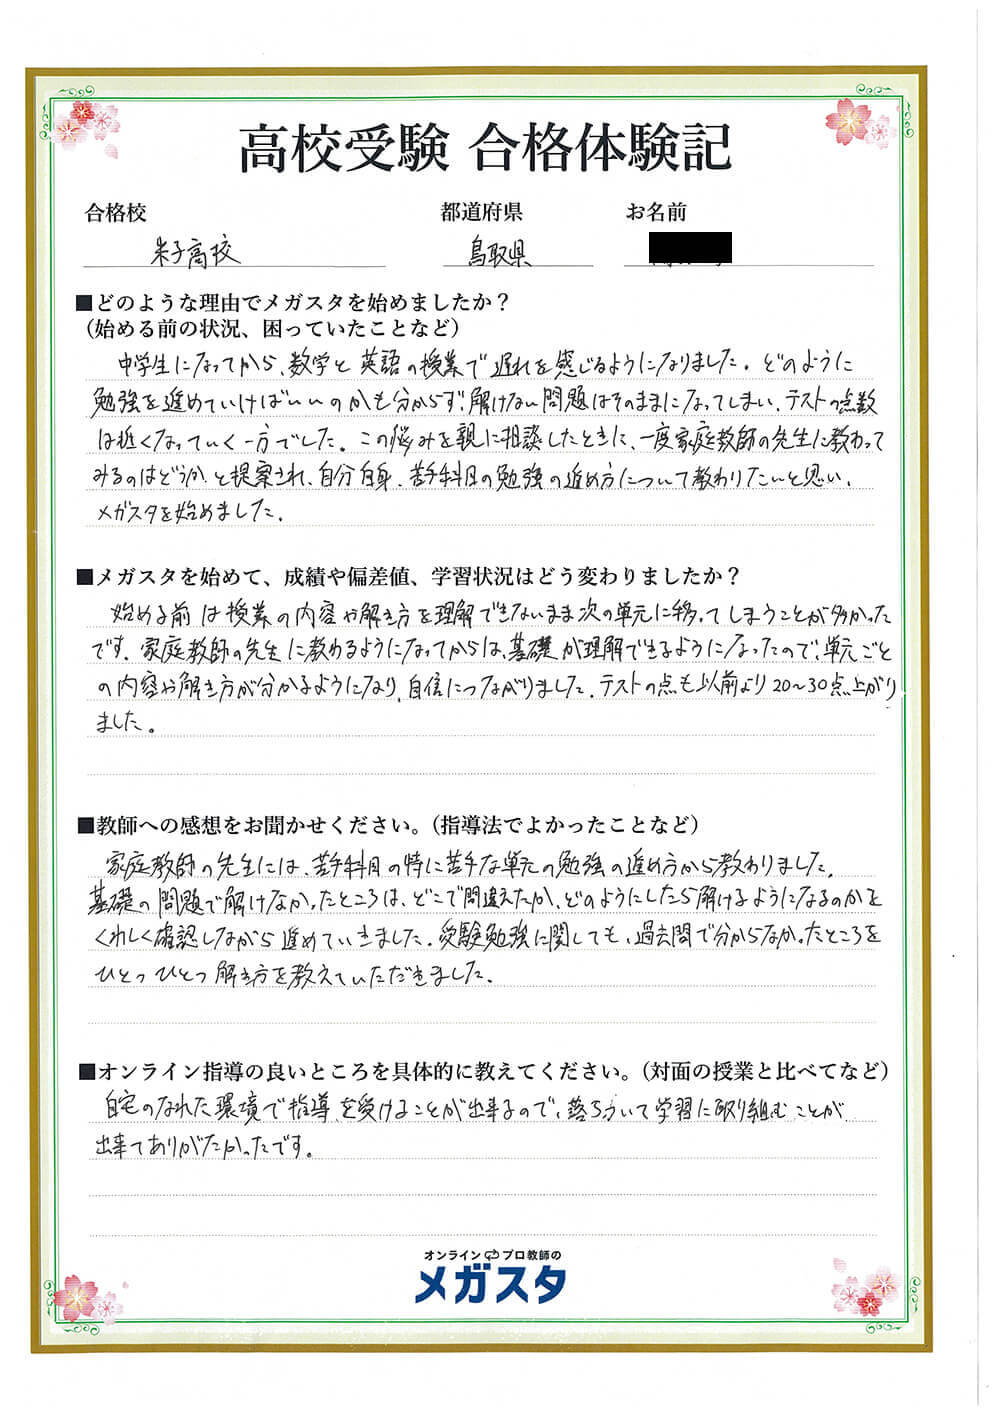 高校受験 合格体験記
合格校 都道府県 お名前
米子高校 鳥取県
■どのような理由でメガスタを始めましたか？
（始める前の状況、困っていたことなど）
中学生になってから、数学と英語の授業で遅れを感じるようになりました。どのように
勉強を進めていけばいいのかも分からず、解けない問題はそのままになってしまい、テストの点数
は低くなっていく一方でした。この悩みを親に相談したときに、一度家庭教師の先生に教わって
みるのはどうか、と提案され、自分自身、苦手科目の勉強の進め方について教わりたいと思い、
メガスタを始めました。
■メガスタを始めて、成績や偏差値、学習状況はどう変わりましたか？
始める前は授業の内容や解き方を理解できないまま次の単元に移ってしまうことが多かった
です。家庭教師の先生に教わるようになってからは、基礎が理解できるようになったので、単元ごと
の内容や解き方が分かるようになり、自信につながりました。テストの点も以前より20〜30点上がり
ました。
■教師への感想をお聞かせください。（指導法でよかったことなど）
家庭教師の先生には、苦手科目の特に苦手な単元の勉強の進め方から教わりました。
基礎の問題で解けなかったところは、どこで間違えたか、どのようにしたら解けるようになるのかを
くわしく確認しながら進めていきました。受験勉強に関しても、過去問で分からなかったところを
ひとつひとつ解き方を教えていただきました。
■オンライン指導の良いところを具体的に教えてください。（対面の授業と比べてなど）
自宅のなれた環境で指導を受けることが出来るので、落ちついて学習に取り組むことが
出来てありがたかったです。
オンラインプロ教師の
メガスタ